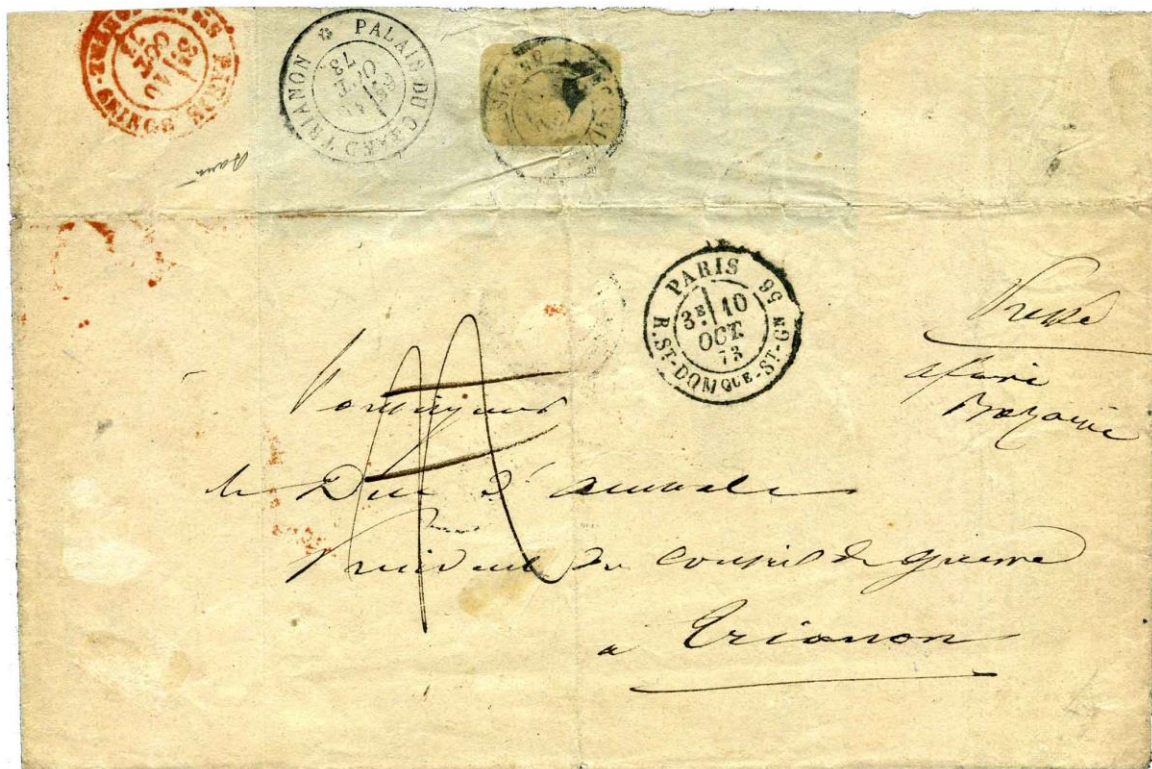 PALAIS-DU-GRAND TRIANON
OCT.
73
PARIS 56
3E 10
OCT.
73
R. ST-DOMQUE-ST-GN
Pressé
affaire
Bazaine
Monseigneur
le Duc d'Aumale
Président du Conseil de guerre
à Trianon